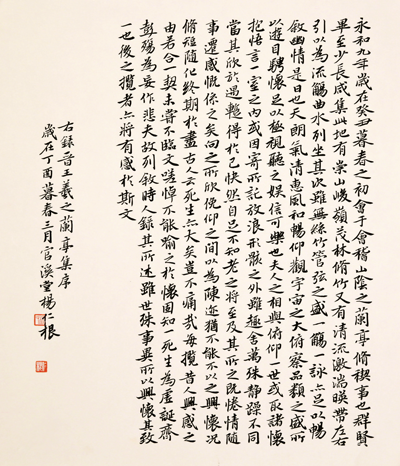 永和九年歲在癸丑暮春之初會于會稽山陰之蘭亭脩稧事也群賢
畢至少長咸集此地有崇山峻嶺茂林脩竹又有清流激湍暎帶左右
引以為流觴曲水列坐其次雖無絲竹管弦之盛一觴一詠亦足以暢
敘幽情是日也天朗氣清惠風和暢仰觀宇宙之大俯察品類之盛所
以遊目騁懷足以極視聽之娛信可樂也夫人之相與俯仰一世或取諸懷
抱悟言一室之內或因寄所託放浪形骸之外雖趣舍萬殊靜躁不同
當其欣於遇蹔得於己快然自足不知老之將至及其所之既惓情隨
事遷感慨係之矣向之所欣俛仰之間以為陳迹猶不能不以之興懷況
脩短隨化終期於盡古人云死生亦大矣豈不痛哉每攬昔人興感之
由若合一契未嘗不臨文嗟悼不能喻之於懷固知一死生為虛誕齊
彭殤為妄作悲夫故列敘時人錄其所述雖世殊事異所以興懷其致
一也後之攬者亦將有感於斯文
右錄晉王羲之蘭亭集序
歲在丁酉暮春三月官溪堂楊仁根